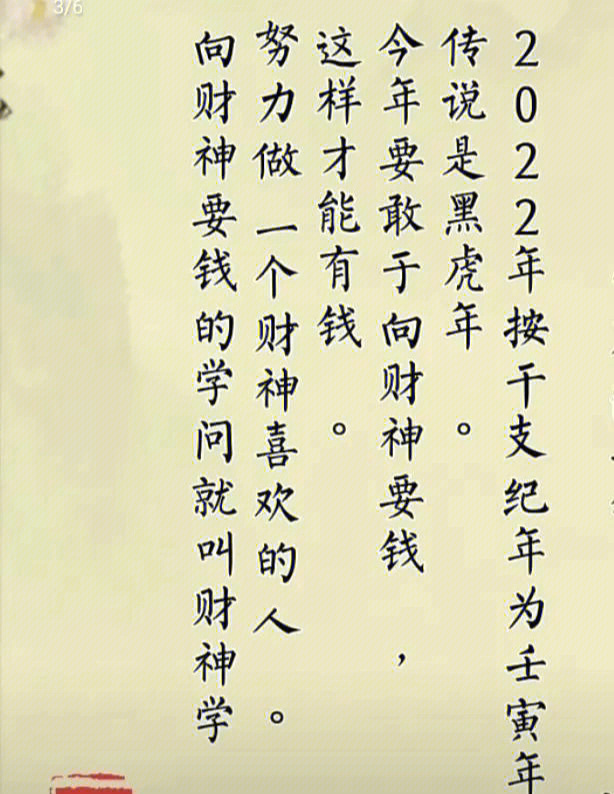 3/6
2022年按干支纪年为壬寅年
传说是黑虎年。
今年要敢于向财神要钱，
这样才能有钱。
努力做一个财神喜欢的人。
向财神要钱的学问就叫财神学